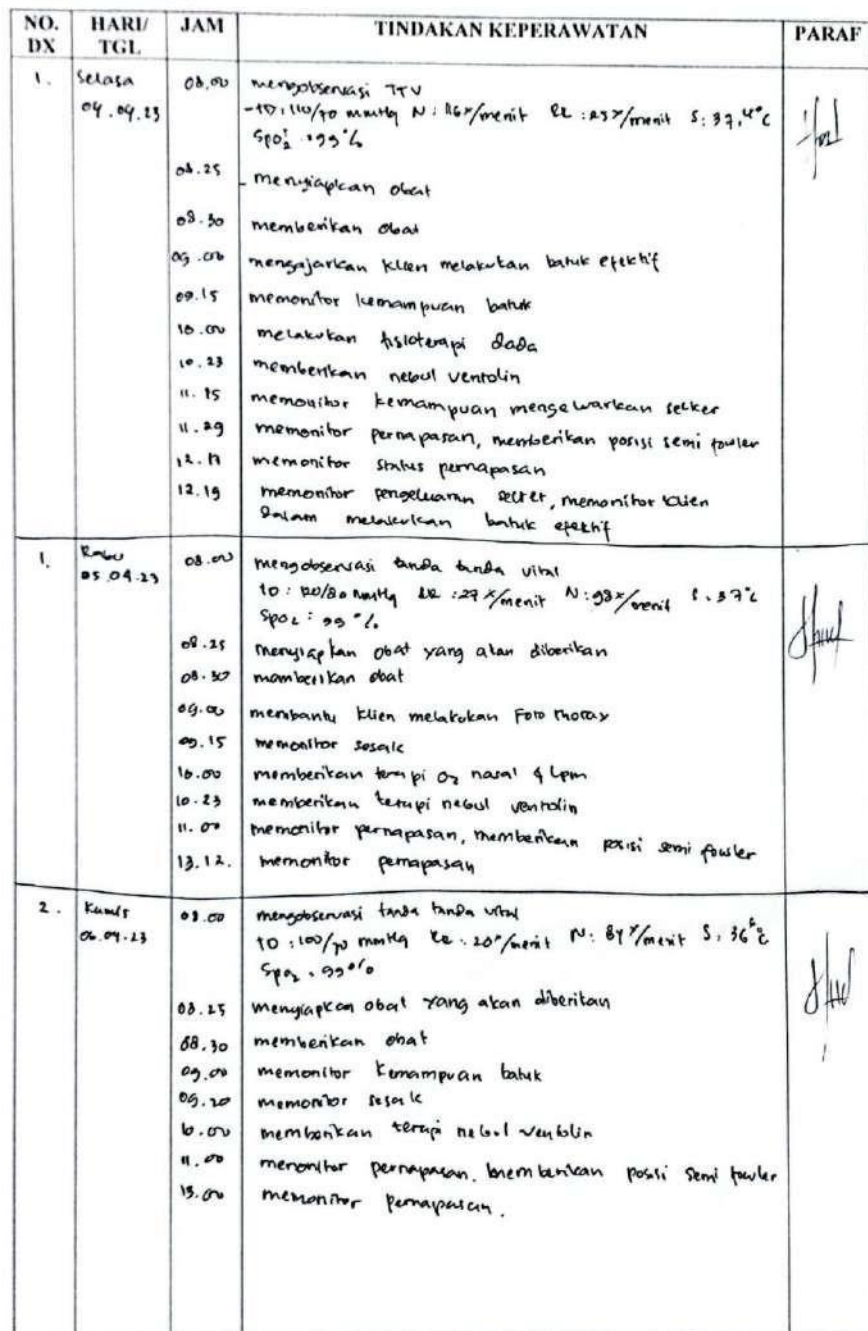 NO. DX HARI/ TGL JAM TINDAKAN KEPERAWATAN PARAF
1. Selasa 08.00 mengobservasi TTV
04.04.23 -TD: 110/70 mmHg N: 116x/menit RR: 25x/menit S: 37,4°C
SpO2: 99%
08.25 - menyiapkan obat
08.30 memberikan obat
09.00 mengajarkan klien melakukan batuk efektif
09.15 memonitor kemampuan batuk
10.00 melakukan fisioterapi dada
10.23 memberikan nebul ventolin
11.15 memonitor kemampuan mengeluarkan sekret
11.29 memonitor pernapasan, memberikan posisi semi fowler
12.17 memonitor status pernapasan
12.19 memonitor pengeluaran sekret, memonitor klien
dalam melakukan batuk efektif
1. Rabu 08.00 mengobservasi tanda tanda vital
05.04.23 TD: 120/80 mmHg RR: 27x/menit N: 98x/menit S. 37°C
SpO2: 99%
08.25 menyiapkan obat yang akan diberikan
08.30 memberikan obat
09.00 membantu klien melakukan Foto thorax
09.15 memonitor sesak
10.00 memberikan terapi O2 nasal 4 Lpm
10.23 memberikan terapi nebul ventolin
11.00 memonitor pernapasan, memberikan posisi semi fowler
13.12. memonitor pernapasan
2. Kamis 08.00 mengobservasi tanda tanda vital
06.04.23 TD: 100/70 mmHg RR: 20x/menit N: 84x/menit S: 36
SpO2. 99%
08.25 menyiapkan obat yang akan diberikan
08.30 memberikan obat
09.00 memonitor kemampuan batuk
09.20 memonitor sesak
10.00 memberikan terapi nebul ventolin
11.00 memonitor pernapasan. memberikan posisi semi fowler
13.00 memonitor pernapasan.